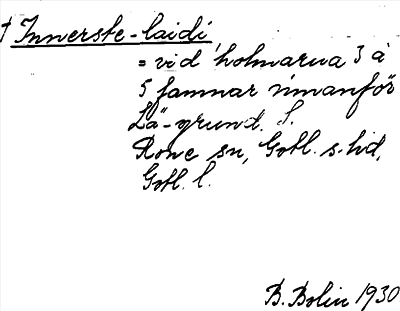 † Innerste-laidi
= vid holmarna 3 à
5 famnar innanför
Lä-grund. S.
Rone sn, Gotl. s. hd,
Gotl. l.
B. Bolin 1930